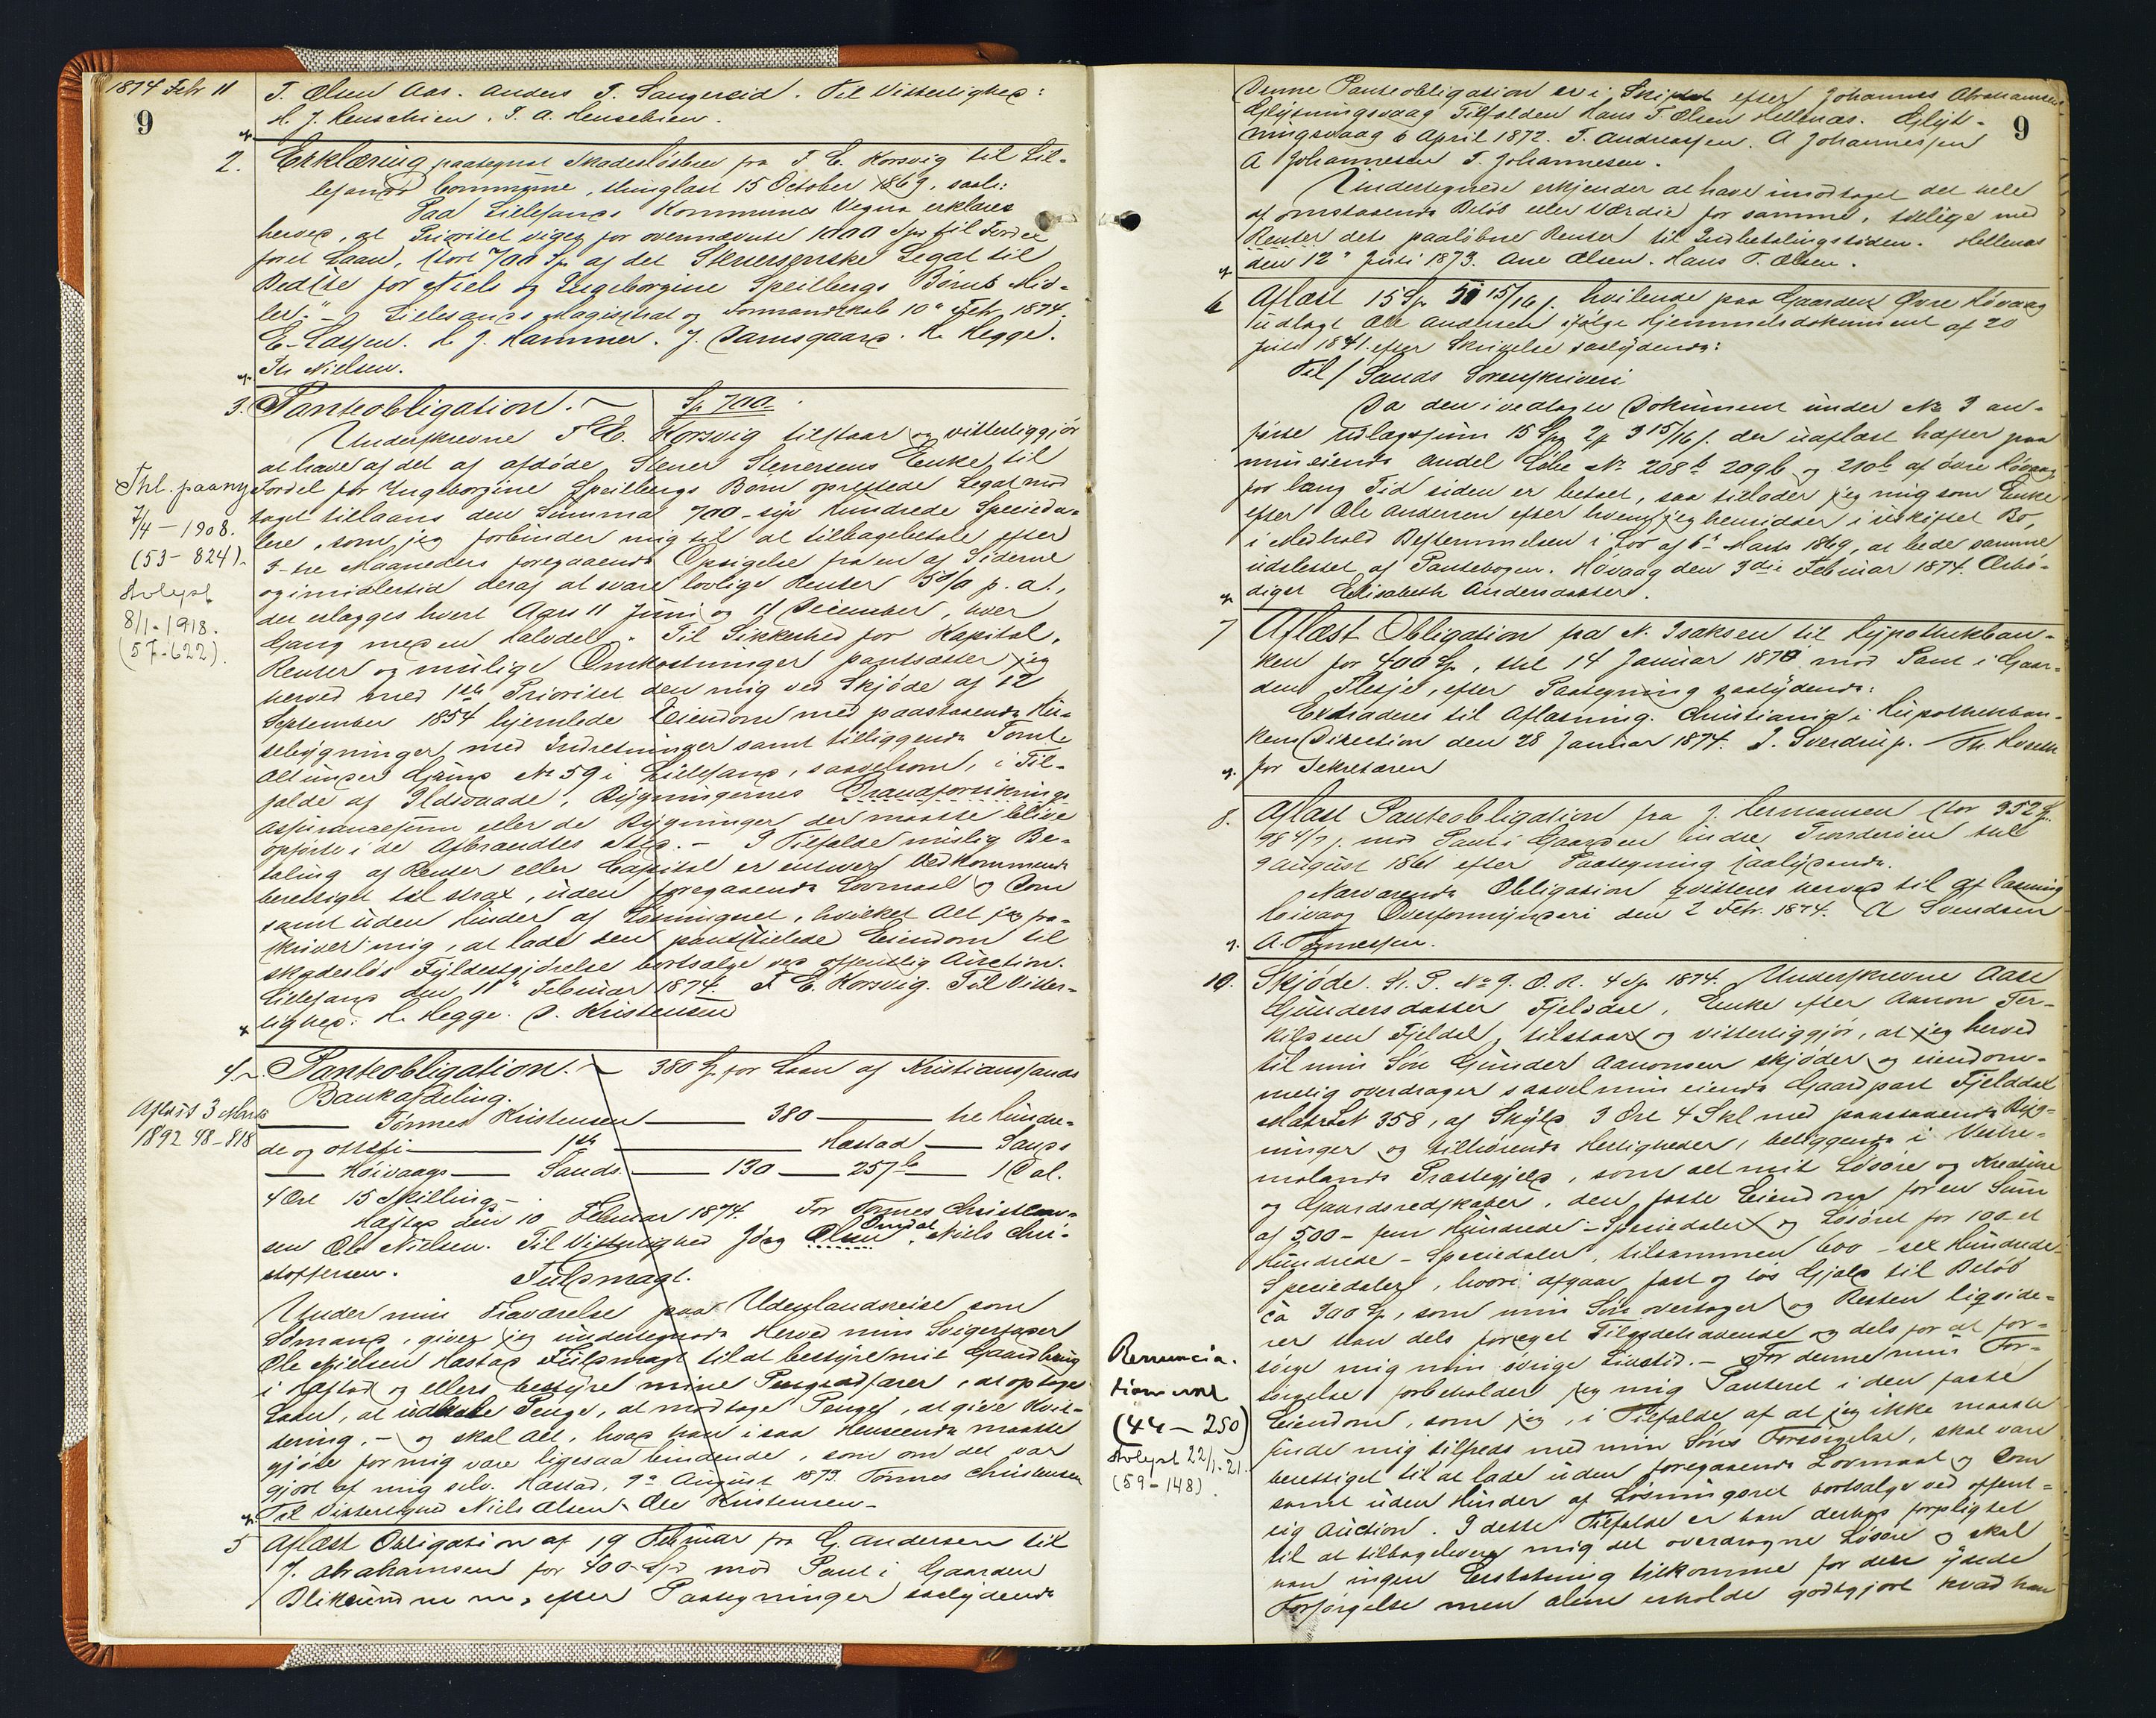 1874 Febr 11
9
T. Olsen Aas. Anders T. Saugereid. Til Vitterlighed:
H. J. Henschien. T. A. Henschien.
2. Erklæring paategnet Skadesløsbrev fra T. E. Korsvig til Lil-
lesands Commune, thinglæst 15 October 1869, saal:
Paa Lillesands Kommunes Vegne erklæres
herved, at Prioritet viger for ovennævnte 1000 Spd til Fordel
for et Laan, stort 700 Sp af det Stenersenske Legat til
Bedste for Niels og Ingeborgine Speilbergs Børns Mid-
ler." – Lillesands Magistrat og Formandskab 10de Febr 1874.
E. Lassen. H J. Hammer. J. Damsgaard. H. Hegge.
Th Nielsen.
3. Panteobligation. Sp 700.
Underskrevne T E. Korsvig tilstaar og vitterliggjør
at have af det af afdøde Stener Stenersens Enke til
Fordel for Ingeborgine Speilbergs Børn oprettede Legat mod-
taget tillaans den Summa 700 – syv hundrede Specieda-
lere, som jeg forbinder mig til at tilbagebetale efter
3 – tre Maaneders foregaaende Opsigelse fra en af Siderne
og imidlertid deraf at svare lovlige Renter 5 % p. a.,
der erlægges hvert Aars 11 Juni og 11 December, hver
Gang med en Halvdel. Til Sikkerhed for Kapital,
Renter og mulige Omkostninger pantsætter jeg
herved med 1ste Prioritet den mig ved Skjøde af 12
September 1854 hjemlede Eiendom med paastaaende Hu-
sebygninger med Indretninger samt tilliggende Tomt
Alt under Grund No 59 i Lillesand, saavelsom, i Til-
fælde af Ildsvaade, Bygningernes Brandforsikrings
Assurancesum eller de Bygninger der maatte blive
opførte i de Afbrændtes Sted. – I Tilfælde mislig Be-
taling af Renter eller Capital er enhver Vedkommende
berettiget til strax, uden foregaaende Lovmaal og Dom
samt uden Hinder af Løsningsret, hvilket Alt jeg fra-
skriver mig, at lade den pantstillede Eiendom til
skadesløs Fyldestgjørelse bortsælge ved offentlig Auction.
Lillesand den 11te Februar 1874. T E. Korsvig. Til Vitter-
lighed: H. Hegge. D. Kristensen
Thl. paany
7/4 – 1908.
(53 – 824).
Avlyst
8/1 - 1918.
(57-622).
4. Panteobligation. 380 Sp. for Laan af Kristianssands
Bankafdeling.
Tønnes Kristensen — 380 — tre Hundre-
de og otteti — 1ste — Hæstad — Sands
— Høivaags — Sands. — 130 — 257b — 1 Dal.
4 Ort 15 Skilling –
Hæstad den 10 Februar 1874. For Tønnes Christen-
sen Ole Nielsen. Til Vitterlighed Jørg Olsen Omdal. Niels Chri-
stoffersen.
Fuldmagt.
Under min Fraværelse paa Udenlandsreise som
Sømand, giver jeg undertegnede Herved min Svigerfader
Ole Nielsen Hæstad Fuldmagt til at bestyre mit Gaardbrug
i Hæstad og ellers bestyre mine Pengeaffærer, at optage
Laan, at udbetale Penge, at modtage Penge, at give Kvit-
tering. – og skal Alt, hvad han i saa Henseende maatte
gjøre for mig være ligesaa bindende, som om det var
gjort af mig selv. Hæstad, 7de August 1873. Tønnes Christensen
Til Vitterlighed Niels Olsen Ole Kristensen –
Aflæst 3 Marts
1892 48-818
5 Aflæst Obligation af 19 Februar fra G. Andersen til
J. Abrahamsen for 400 Spd mod Pant i Gaarden
Bliksund m. m., efter Paategninger saalydende
9
Denne Panteobligation er i Skiftet efter Johannes Abrahamsen
Glybningsvaag Tilfalden Hans T. Olsen Hellenæs. Glyb-
ningsvaag 6 April 1872. T. Andreassen. A Johannessen
A Johannesen T. Johannesen.
Undertegnede erkjender at have imodtaget det hele
af omstaaende Beløb eller Værdie for samme, tillige med
Renter dets paaløbne Renter til Indbetalingstiden. Hellenæs
den 12te Juli 1873. Ane Olsen. Hans T. Olsen.
6 Aflæst 15 Sp 51 15/16 s. hvilende paa Gaarden Øvre Høvaag
udlagt Ole Andersen ifølge Hjemmelsdokument af 20
Juli 1841. efter Skrivelse saalydende:
Til / Sands Sorenskriveri
Da den i vedlagte Dokument under No 3 an-
førte Udlægssum 15 Spd 2 3 15/16 s. der uaflæst hæfter paa
min eiende Andel Løbe No 208b 209b og 210b af øvre Høvaag
for lang Tid siden er betalt, saa tillader jeg mig som Enke
efter Ole Andersen efter hvem jeg hensidder i uskiftet Bo,
i Medhold Bestemmelsen i Lov af 6te Marts 1869, at bede samme
udslettet af Pantebogen. Høvaag den 3die Februar 1874. Ærbø-
digst Elisabeth Andersdatter.
7 Aflæst Obligation fra N. Isaksen til Hypothekban-
ken for 400 Sp., thl 14 Januar 1870 mod Pant i Gaar-
den Flesje, efter Paategning saalydende:
Extraderes til Aflæsning. Christiania i Hypothekban-
kens Direction den 28 Januar 1874. J. Sverdrup. Th.
for Sekretæren
8. Aflæst Panteobligation fra J. Hermansen stor 352 Sp.
98 4/7 s. mod Pant i Gaarden Indre Tronderøen thl
9 August 1861 efter Paategning saalydende.
Nærværende Obligation qvitteres herved til Aflæsning
Høivaag Overformynderi den 2 Febr. 1874. A Svendsen
A. Tønnessen.
10. Skjøde. St. P. No 9. O. R. 4 Sp 1874. Underskrevne Aase
Gundersdatter Fjeldal, Enke efter Aanon Ter-
kildsen Fjeldal, tilstaar og vitterliggjør, at jeg herved
til min Søn Gunder Aanonsen skjøder og eiendom-
melig overdrager saavel min eiende Gaardpart Fjelddal
Matr Nr 358, af Skyld 3 Ort 4 Skl med paastaaende Byg-
ninger og tilhørende Herligheder, beliggende i Vestre-
molands Præstegjeld, som alt mit Løsøre og Kreature
og Gaardsredskaber, den faste Eiendom for en Sum
af 500 – fem Hundrede – Speciedaler og Løsøret for 100 – et
Hundrede – Speciedaler, tilsammen 600 – sex Hundrede
Speciedaler, hvori afgaar fast og løs Gjæld til Beløb
ca 300 Sp, som min Søn overtager og Resten liqvide-
rer han dels foreget Tilgodehavende og dels for at for-
sørge mig min øvrige Livstid. – For denne min For-
sørgelse forbeholder jeg mig Panteret i den faste
Eiendom, som jeg, i Tilfælde af at jeg ikke maatte
finde mig tilfreds med min Søns Forsørgelse, skal være
berettiget til at lade uden foregaaende Lovmaal og Dom
samt uden Hinder af Løsningsret bortsælge ved offent-
lig Auction. I dette Tilfælde er han derhos forpligtet
til at tilbagelevere mig det overdragne Løsøre og skal
han ingen Erstatning tilkomme for den ydede
Forsørgelse men alene erholde godtgjort hvad han
Renuncia-
tion
(44 – 250)
Avlyst 22/1-21.
(59-148).